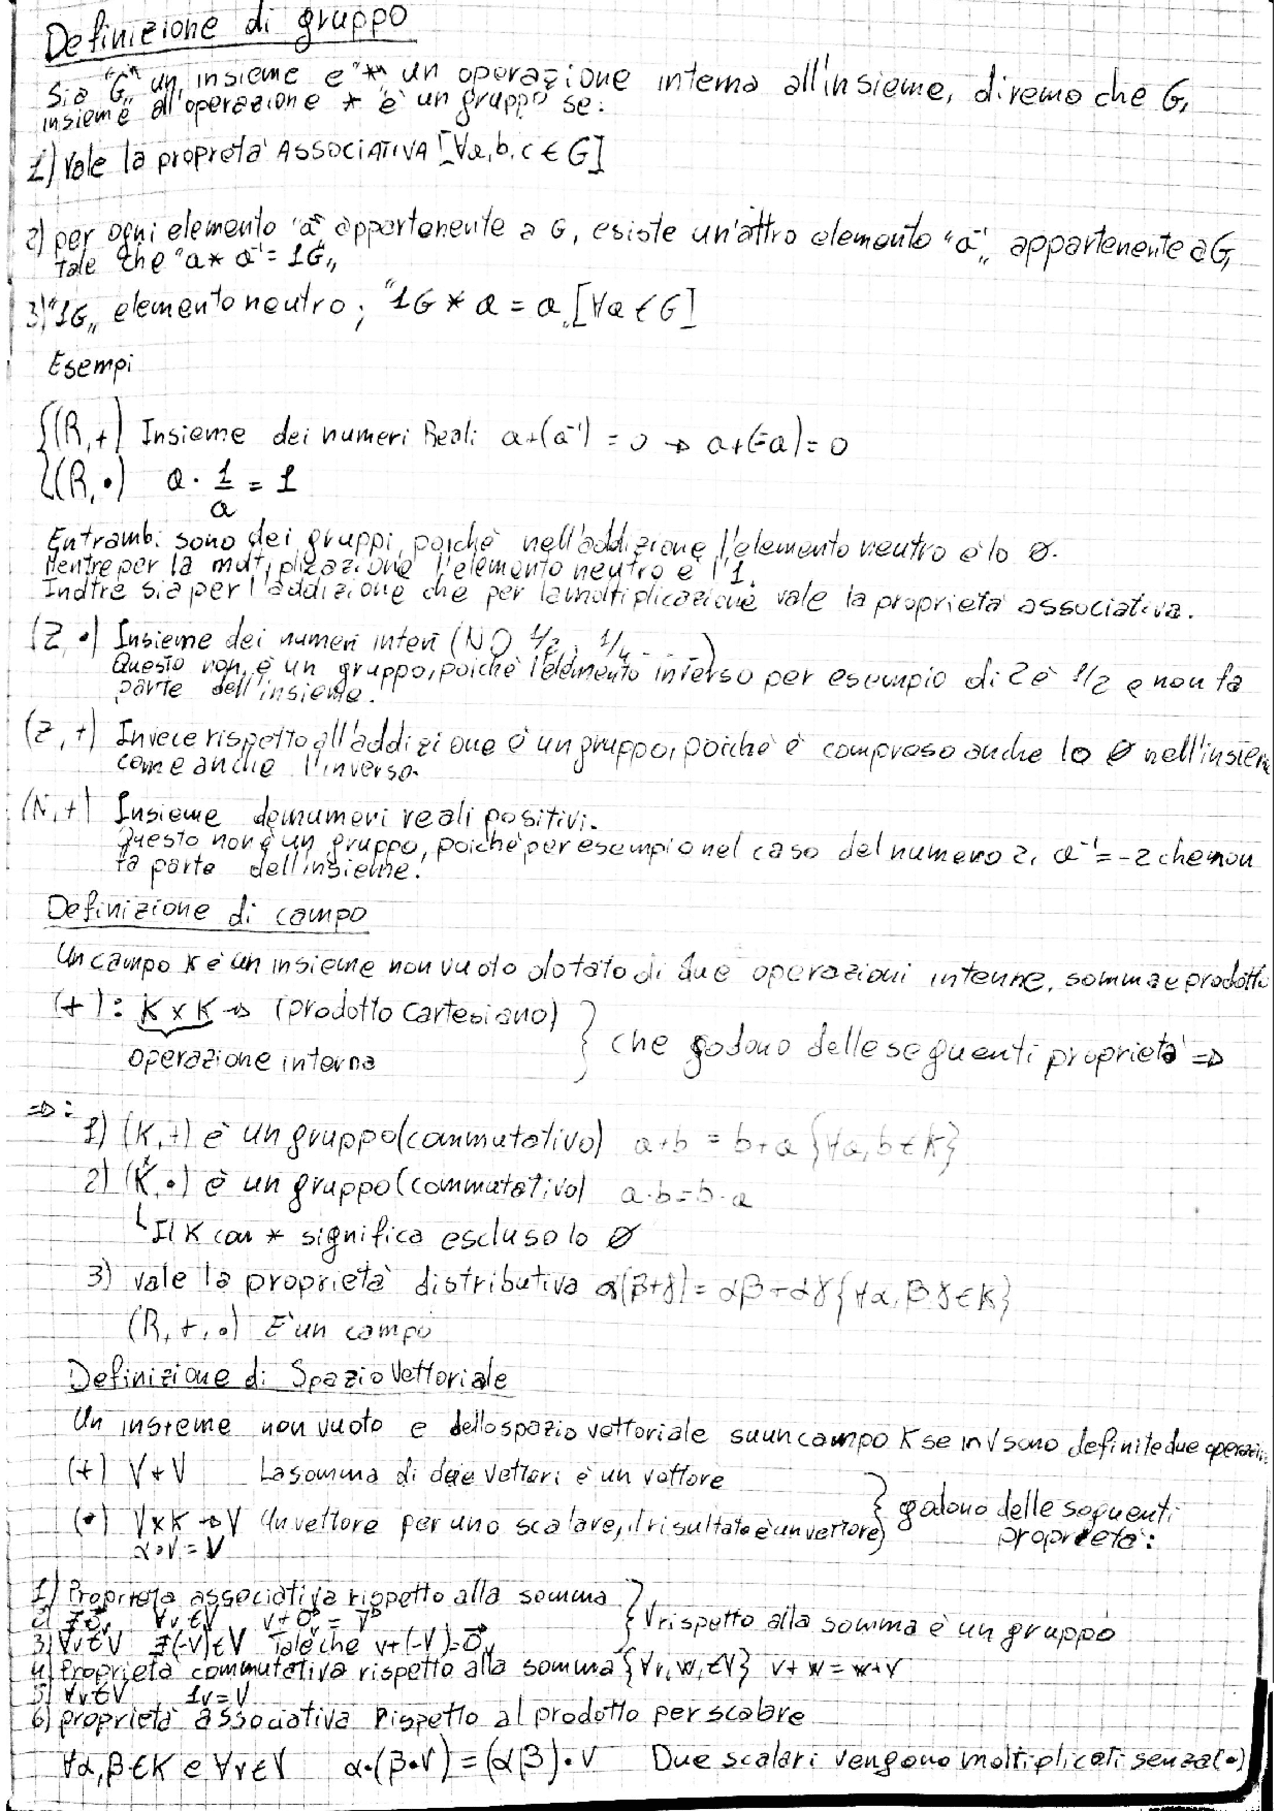 Definizione di gruppo
Sia "G" un insieme e "*" un operazione interna all'insieme, diremo che G,
insieme all'operazione * è un gruppo se:
1) Vale la propretà ASSOCIATIVA [∀a,b,c ∈ G]
2) per ogni elemento "a" appartenente a G, esiste un'altro elemento "a⁻¹" appartenente a G,
tale che "a * a⁻¹ = 1G"
3) "1G" elemento neutro; "1G * a = a" [∀a ∈ G]
Esempi
{(R,+) Insieme dei numeri Reali a+(a⁻¹) = 0 → a+(-a)=0
{(R,•) a · 1/a = 1
Entrambi sono dei gruppi, poichè nell'addizione l'elemento neutro è lo 0.
Mentre per la moltiplicazione l'elemento neutro è l'1.
Inoltre sia per l'addizione che per la moltiplicazione vale la proprietà associativa.
(Z,•) Insieme dei numeri interi (NO 1/2, 1/4 - - -)
Questo non è un gruppo, poichè l'elemento inverso per esempio di 2 è 1/2 e non fa
parte dell'insieme.
(Z,+) Invece rispetto all'addizione è un gruppo, poichè è compreso anche lo 0 nell'insieme
come anche l'inverso.
(N,+) Insieme dei numeri reali positivi.
Questo non è un gruppo, poichè per esempio nel caso del numero 2, a⁻¹=-2 che non
fa parte dell'insieme.
Definizione di campo
Un campo K è un insieme non vuoto dotato di due operazioni interne, somma e prodotto
(+): K x K → (prodotto Cartesiano)
operazione interna
} che godono delle seguenti proprietà ⇒
⇒:
1) (K,+) è un gruppo (commutativo) a+b = b+a {∀a,b ∈ K}
2) (K*,•) è un gruppo (commutativo) a·b=b·a
Il K con * significa escluso lo 0
3) vale la proprietà distributiva α(β+γ)= αβ+αγ {∀α,β,γ ∈ K}
(R,+,•) E' un campo
Definizione di Spazio Vettoriale
Un insieme non vuoto è detto spazio vettoriale su un campo K se in V sono definite due operazioni
(+) V+V La somma di due vettori è un vettore
(•) V x K → V Un vettore per uno scalare, il risultato è un vettore
α•v = V
} godono delle seguenti
proprietà:
1) Proprietà associativa rispetto alla somma
2) ∃0⃗ᵥ ∀v∈V v+0⃗ᵥ = v⃗
3) ∀v∈V ∃(-V)∈V Tale che v+(-V)=0⃗ᵥ
} V rispetto alla somma è un gruppo
4) Proprietà commutativa rispetto alla somma {∀v,w,∈V} v+w=w+v
5) ∀v∈V 1v=v
6) proprietà associativa Rispetto al prodotto per scalare
∀α,β∈K e ∀v∈V α·(β·V)=(αβ)·V Due scalari vengono moltiplicati senza (•)